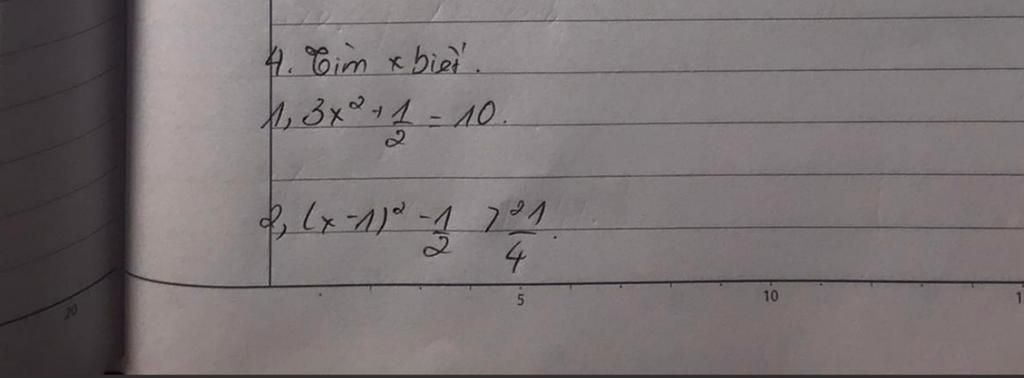 4. Tìm x biết.
1, 3x² + 1/2 = 10.
2, (x - 1)² - 1/2 > 21/4.
5 10 1
20